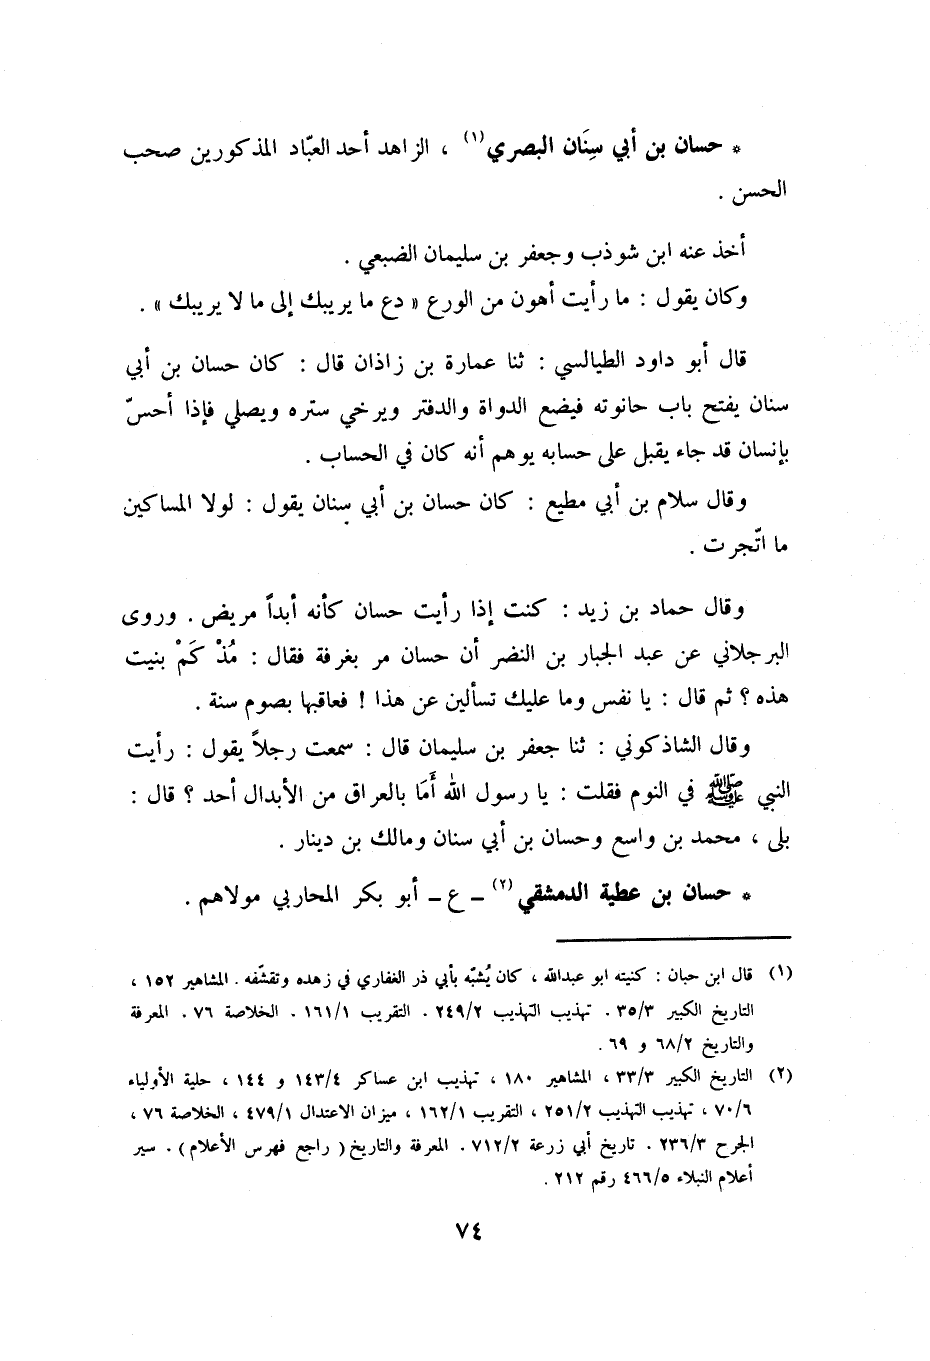 * حسان بن أبي سِنَان البصري(١) ، الزاهد أحد العبّاد المذكورين صحب
الحسن .
أخذ عنه ابن شوذب وجعفر بن سليمان الضبعي .
وكان يقول : ما رأيت أهون من الورع « دع ما يريبك إلى ما لا يريبك » .
قال أبو داود الطيالسي : ثنا عمارة بن زاذان قال : كان حسان بن أبي
سنان يفتح باب حانوته فيضع الدواة والدفتر ويرخي ستره ويصلي فإذا أحسّ
بإنسان قد جاء يقبل على حسابه يوهم أنه كان في الحساب .
وقال سلام بن أبي مطيع : كان حسان بن أبي سنان يقول : لولا المساكين
ما اتّجرت .
وقال حماد بن زيد : كنت إذا رأيت حسان كأنه أبداً مريض . وروى
البرجلاني عن عبد الجبار بن النضر أن حسان مر بغرفة فقال : مُذْ كَمْ بنيت
هذه ؟ ثم قال : يا نفس وما عليك تسألين عن هذا ! فعاقبها بصوم سنة .
وقال الشاذكوني : ثنا جعفر بن سليمان قال : سمعت رجلاً يقول : رأيت
النبي ﷺ في النوم فقلت : يا رسول الله أَمَا بالعراق من الأبدال أحد ؟ قال :
بلى ، محمد بن واسع وحسان بن أبي سنان ومالك بن دينار .
* حسان بن عطية الدمشقي(٢) ـ ع ـ أبو بكر المحاربي مولاهم .
(١) قال ابن حبان : كنيته ابو عبدالله ، كان يُشبّه بأبي ذر الغفاري في زهده وتقشّفه . المشاهير ١٥٢ ،
التاريخ الكبير ٣٥/٣ . تهذيب التهذيب ٢٤٩/٢ . التقريب ١٦١/١ . الخلاصة ٧٦ . المعرفة
والتاريخ ٦٨/٢ و ٦٩ .
(٢) التاريخ الكبير ٣٣/٣ ، المشاهير ١٨٠ ، تهذيب ابن عساكر ١٤٣/٤ و ١٤٤ ، حلية الأولياء
٧٠/٦ ، تهذيب التهذيب ٢٥١/٢ ، التقريب ١٦٢/١ ، ميزان الاعتدال ٤٧٩/١ ، الخلاصة ٧٦ ،
الجرح ٢٣٦/٣ . تاريخ أبي زرعة ٧١٢/٢ . المعرفة والتاريخ ( راجع فهرس الأعلام ) . سير
أعلام النبلاء ٤٦٦/٥ رقم ٢١٢ .
٧٤